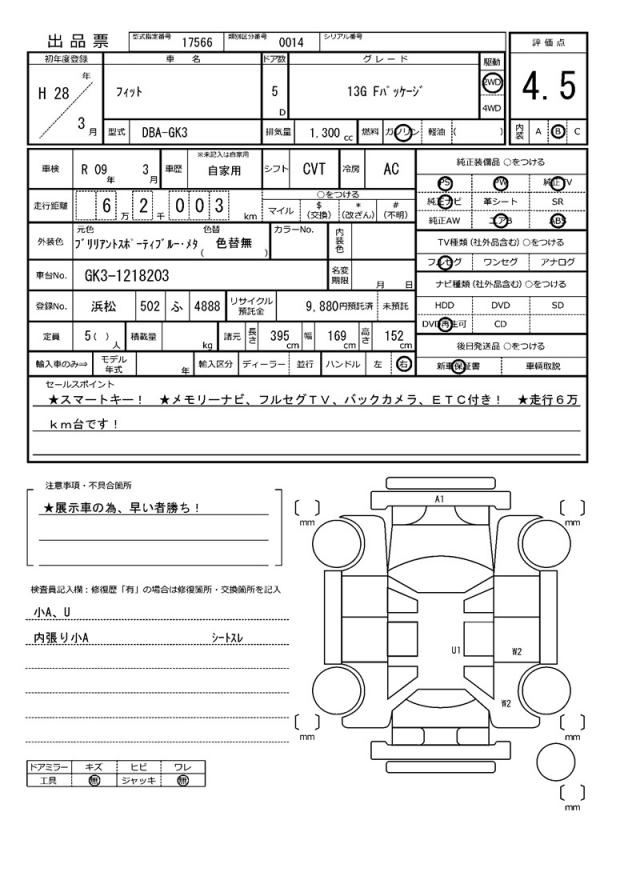 出品票 型式指定番号 17566 類別区分番号 0014 シリアル番号
初年度登録 車名 ドア数 グレード 駆動 評価点
H 28 年 3 月 フィット 5 D 13G Fパッケージ 2WD 4WD 4.5
型式 DBA-GK3 排気量 1.300 cc 燃料 ガソリン 軽油 ( ) 内装 A B C
車検 R 09 年 3 月 車歴 ※未記入は自家用 自家用 シフト CVT 冷房 AC 純正装備品 ○をつける
PS PW 純正TV
走行距離 6 万 2 千 0 0 3 km ○をつける マイル $ (交換) * (改ざん) # (不明) 純正ナビ 革シート SR
純正AW エアB ABS
外装色 元色 ブリリアントスポーティブルー・メタ 色替 ( 色替無 ) カラーNo. 内装色 TV種類 (社外品含む) ○をつける
フルセグ ワンセグ アナログ
車台No. GK3-1218203 名変期限 月 日 ナビ種類 (社外品含む) ○をつける
登録No. 浜松 502 ふ 4888 リサイクル預託金 9,880円預託済 未預託 HDD DVD SD
DVD再生可 CD
定員 5( ) 人 積載量 kg 諸元 長さ 395 cm 幅 169 cm 高さ 152 cm 後日発送品 ○をつける
輸入車のみ⇒ モデル年式 年 輸入区分 ディーラー 並行 ハンドル 左 右 新車保証書 車輌取説
セールスポイント
★スマートキー! ★メモリーナビ、フルセグTV、バックカメラ、ETC付き! ★走行6万
km台です!
注意事項・不具合箇所
★展示車の為、早い者勝ち!
検査員記入欄:修復歴「有」の場合は修復箇所・交換箇所を記入
小A、U
内張り小A シートスレ
ドアミラー キズ ヒビ ワレ
工具 無 ジャッキ 無
A1
[ ] mm [ ] mm
U1 W2
W2
[ ] mm [ ] mm
[ ] mm